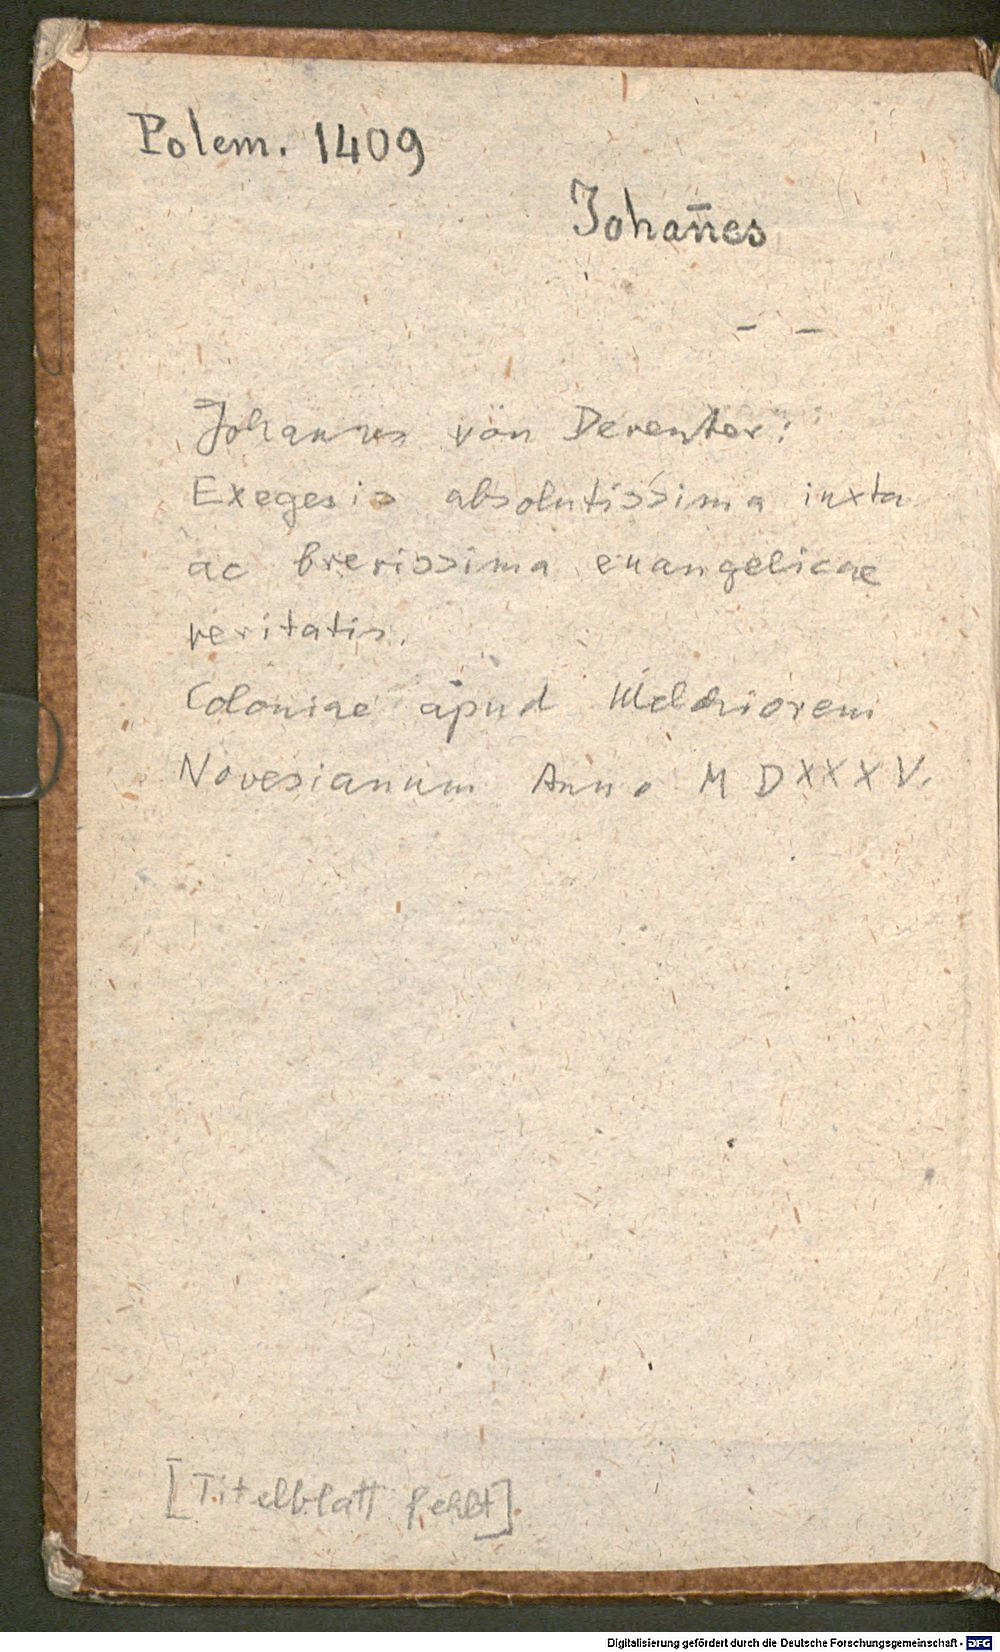 Polem. 1409
Johañes
- -
Johannes von Deventer:
Exegesis absolutissima iuxta
ac brevissima evangelicae
veritatis.
Coloniae apud Melchiorem
Novesianum Anno M D X X X V.
[Titelblatt fehlt]
Digitalisierung gefördert durch die Deutsche Forschungsgemeinschaft - DFG